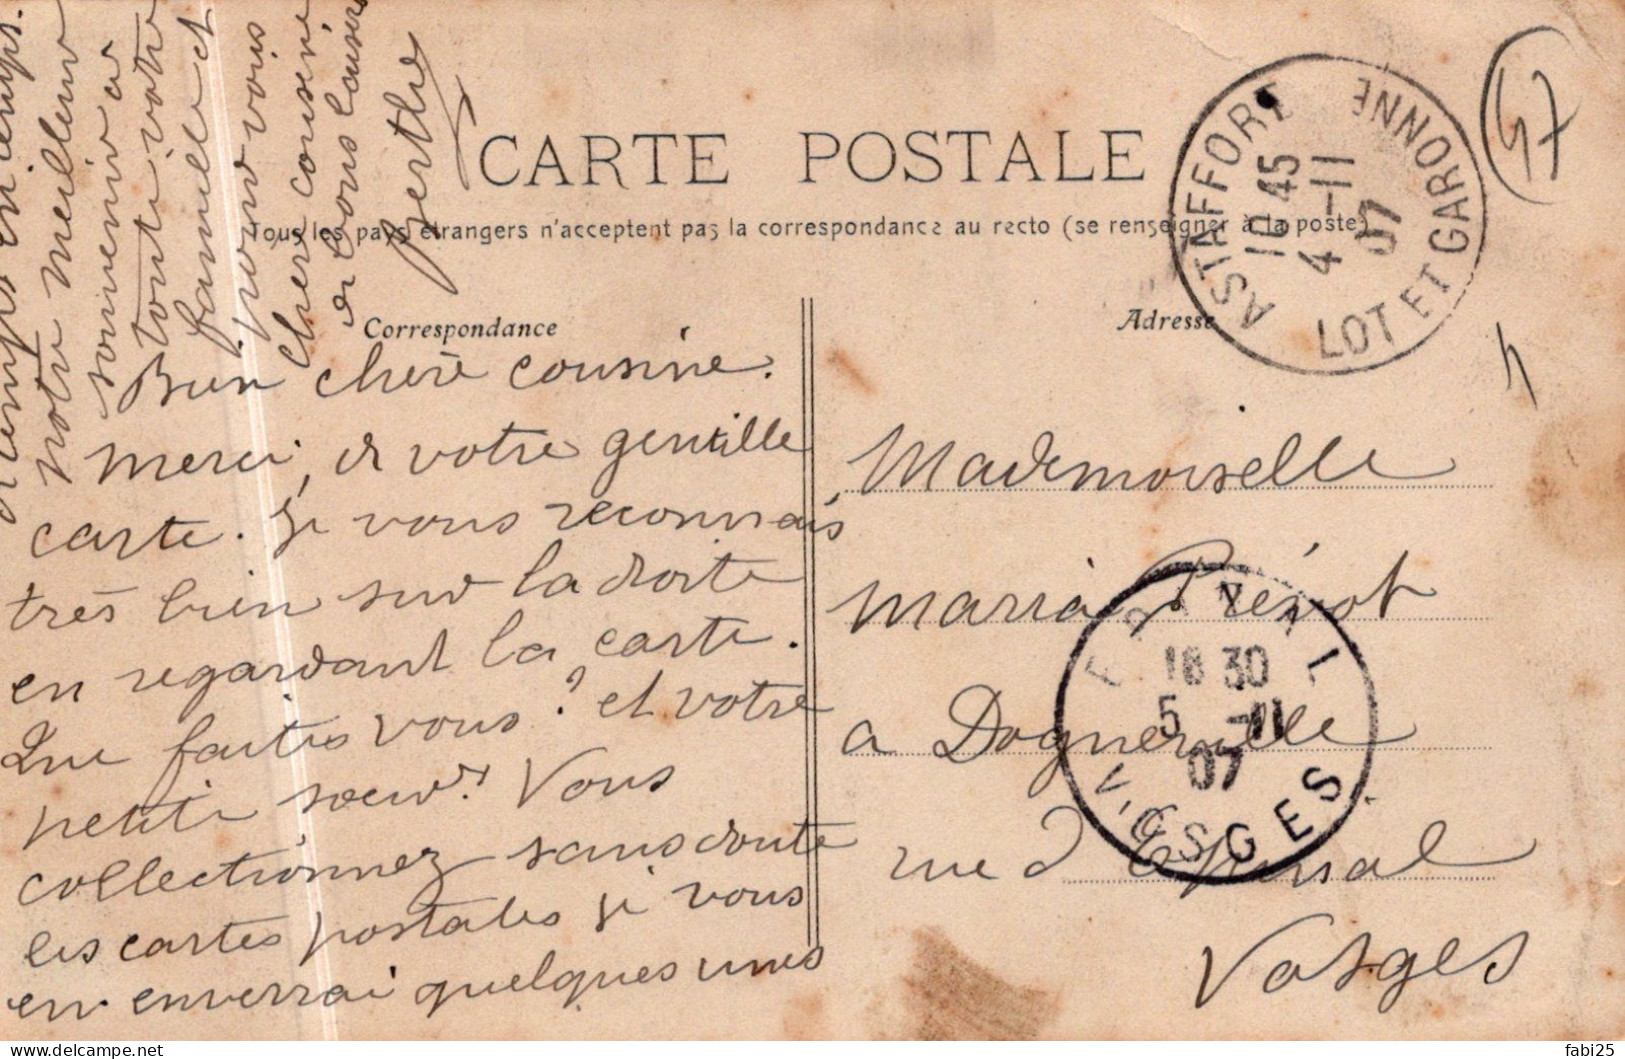 CARTE POSTALE
Tous les pays étrangers n'acceptent pas la correspondance au recto (se renseigner à la poste)
Correspondance
Adresse
Bien chère cousine.
Merci, de votre gentille
carte. Je vous reconnais
très bien sur la droite
en regardant la carte.
Que faites vous? et votre
petite soeur? Vous
collectionnez sans doute
les cartes postales je vous
en enverrai quelques unes
de temps en temps.
notre meilleur
souvenir a
toute votre
famille et
pour vous
chère cousine
de bons baisers
Berthe
Mademoiselle
Maria Prévot
a Dogneville
rue d'Epinal
Vosges
ASTAFFORT
10 45
4 -11
07
LOT ET GARONNE
18 30
5 -11
07
VOSGES
47
fabi25